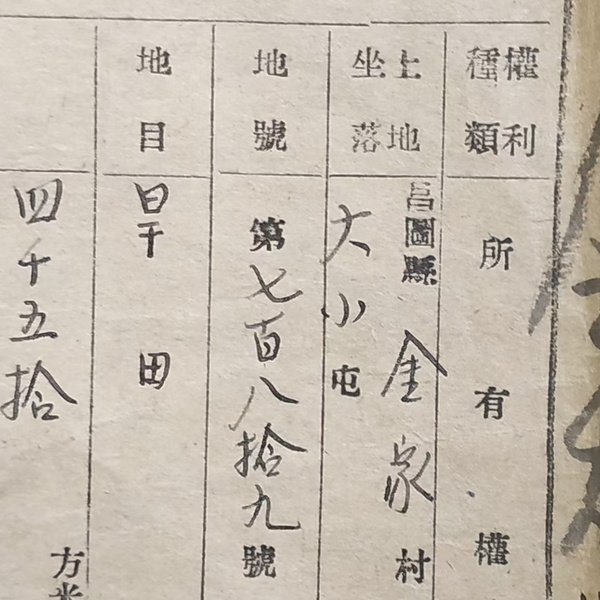 權利種類
所有權
土地坐落
昌圖縣金家村
大小屯
地號
第七百八拾九號
地目
旱田
四千五拾方米